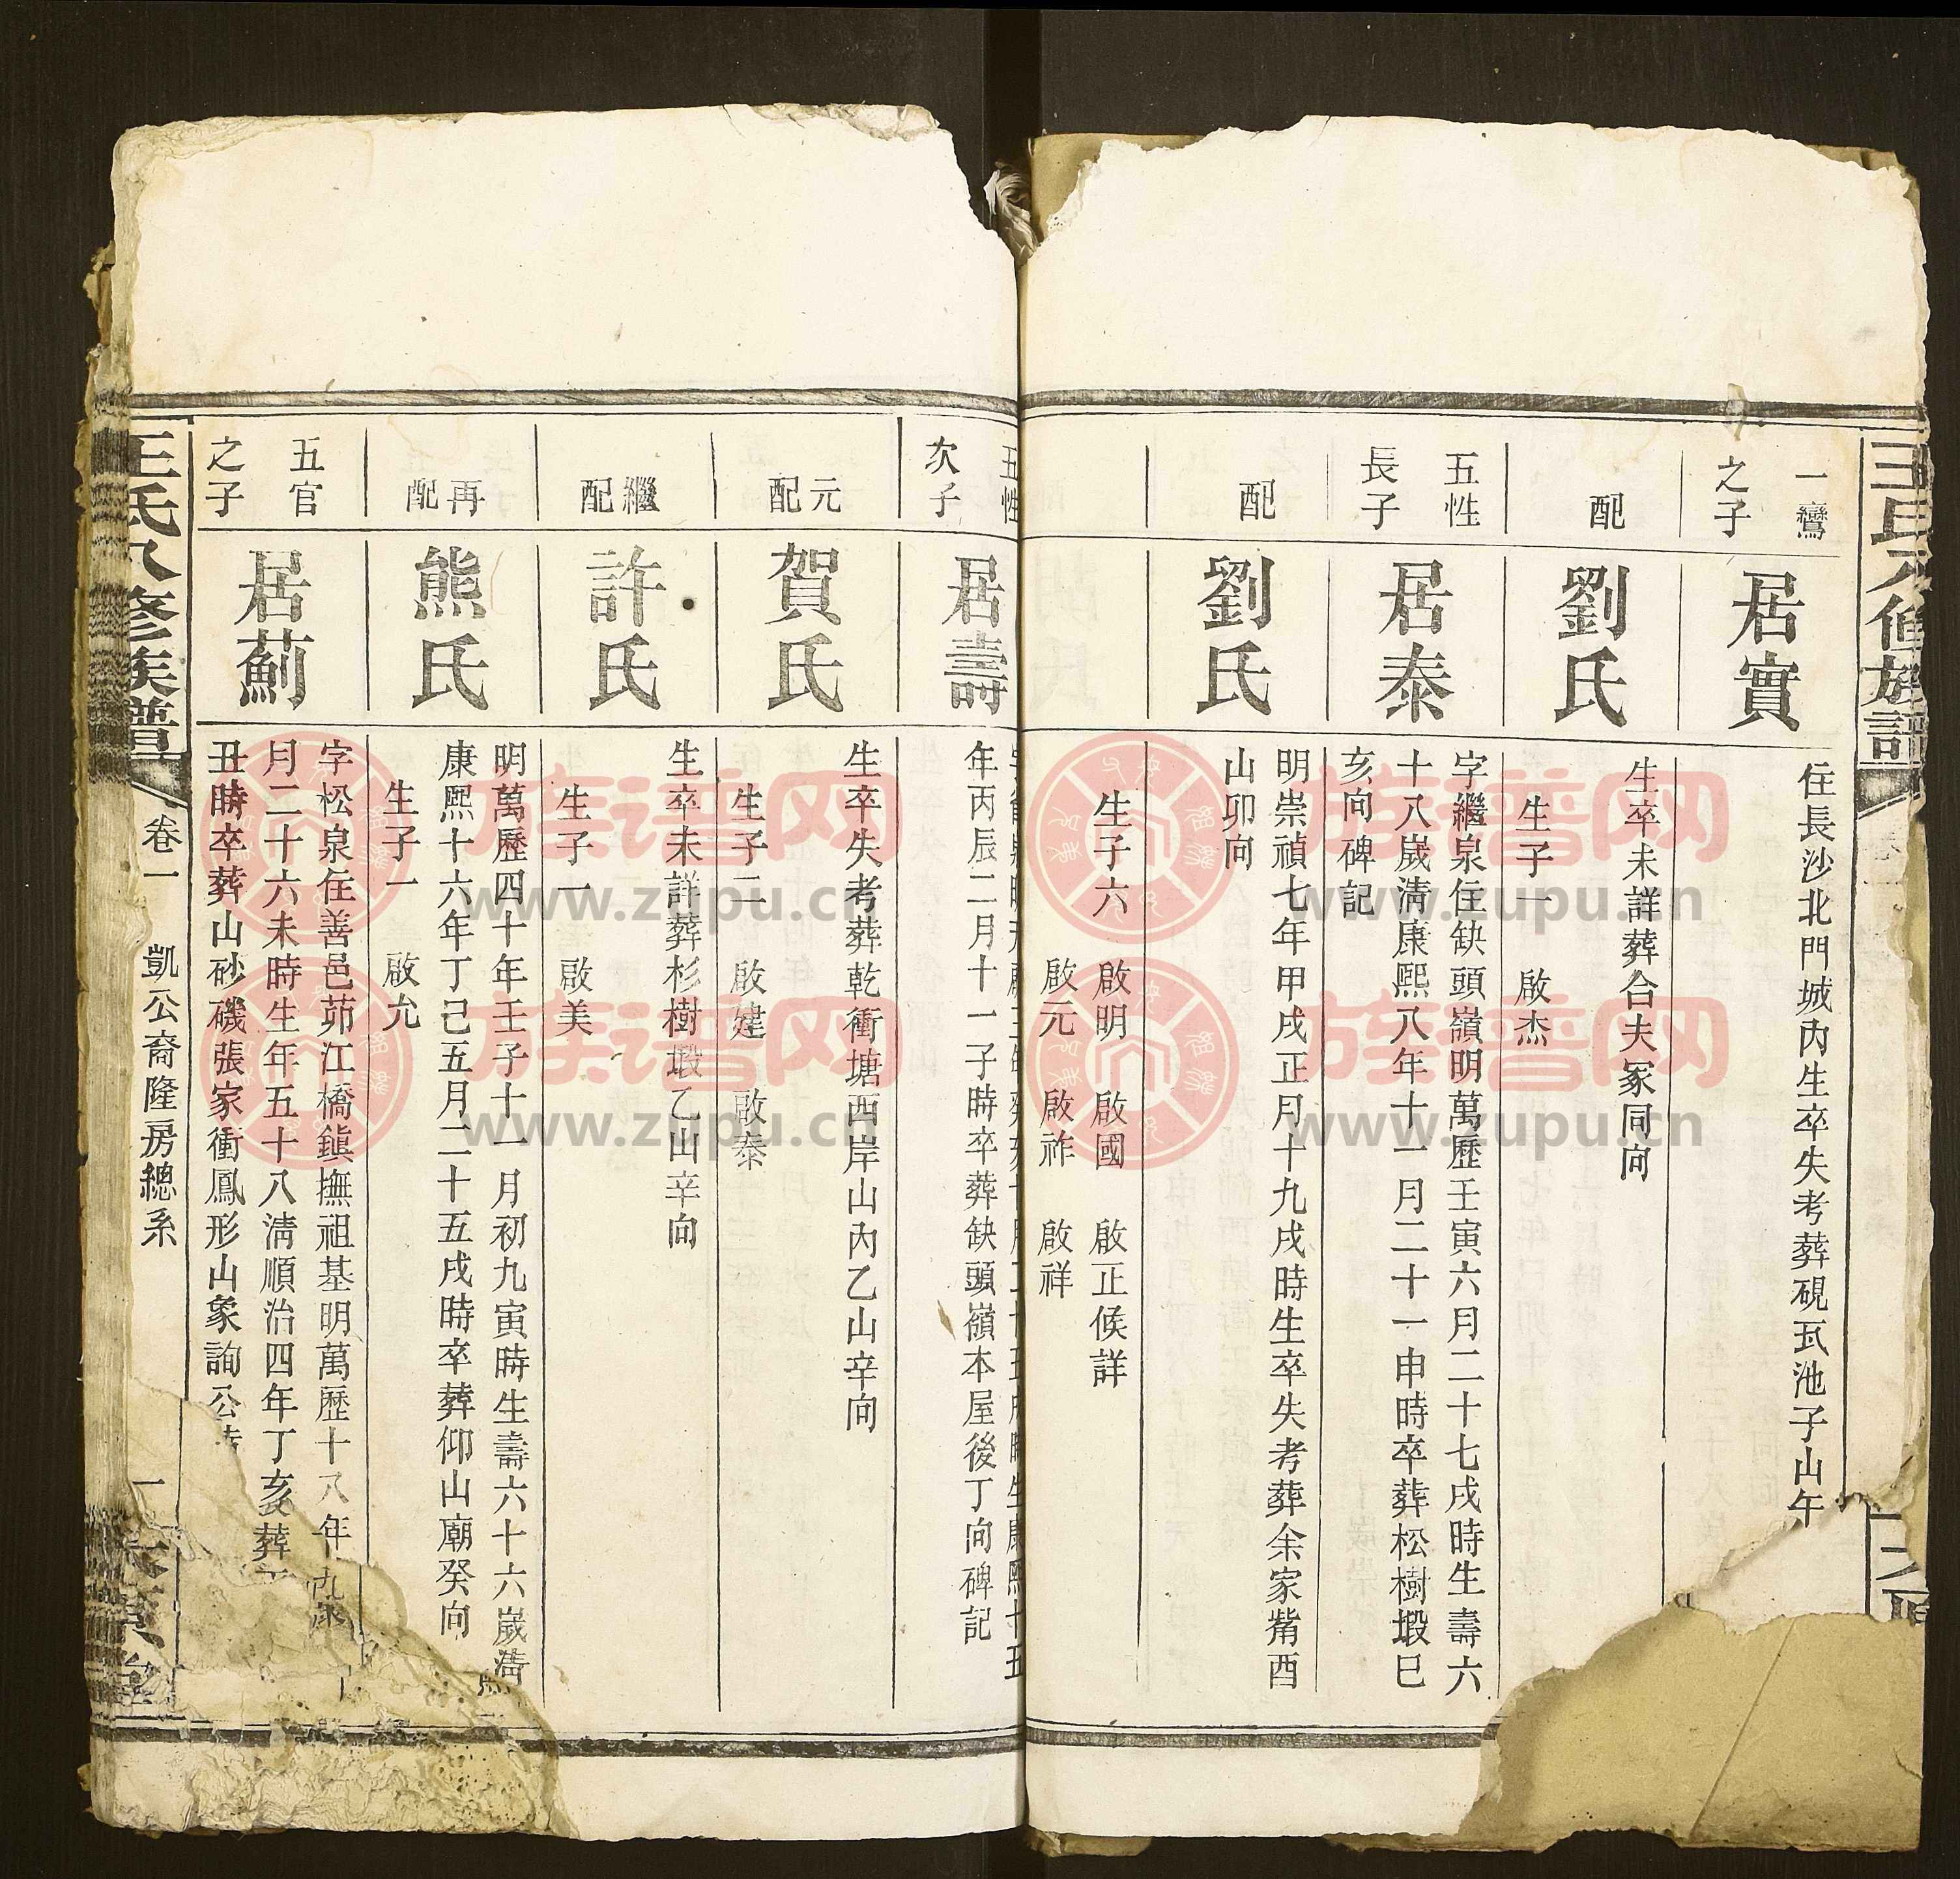 一鸞
之子
居實
住長沙北門城內生卒失考葬硯瓦池子山午
配
劉氏
生卒未詳葬合夫冢同向
生子一 啟杰
五性
長子
居泰
字繼泉住缺頭嶺明萬歷壬寅六月二十七戌時生壽六
十八嵗淸康熙八年十一月二十一申時卒葬松樹塅巳
亥向碑記
配
劉氏
明崇禎七年甲戌正月十九戌時生卒失考葬余家觜酉
山卯向
生子六 啟明 啟國 啟正候詳
啟元 啟祚 啟祥
五性
次子
居壽
年丙辰二月十一子時卒葬缺頭嶺本屋後丁向碑記
元配
賀氏
生卒失考葬乾衝塘西岸山內乙山辛向
生子二 啟建 啟泰
繼配
許氏
生卒未詳葬杉樹塅乙山辛向
生子一 啟美
再配
熊氏
明萬歷四十年壬子十一月初九寅時生壽六十六嵗淸
康熙十六年丁巳五月二十五戌時卒葬仰山廟癸向
生子一 啟允
五官
之子
居薊
字松泉住善邑茆江橋鎭撫祖基明萬歷十八年
月二十六未時生年五十八淸順治四年丁亥
丑時卒葬山砂磯張家衝鳳形山象詢公
王氏八修族譜
卷一
凱公裔隆房總系
一
族谱网
www.zupu.cn
族谱网
www.zupu.cn
族谱网
www.zupu.cn
族谱网
www.zupu.cn